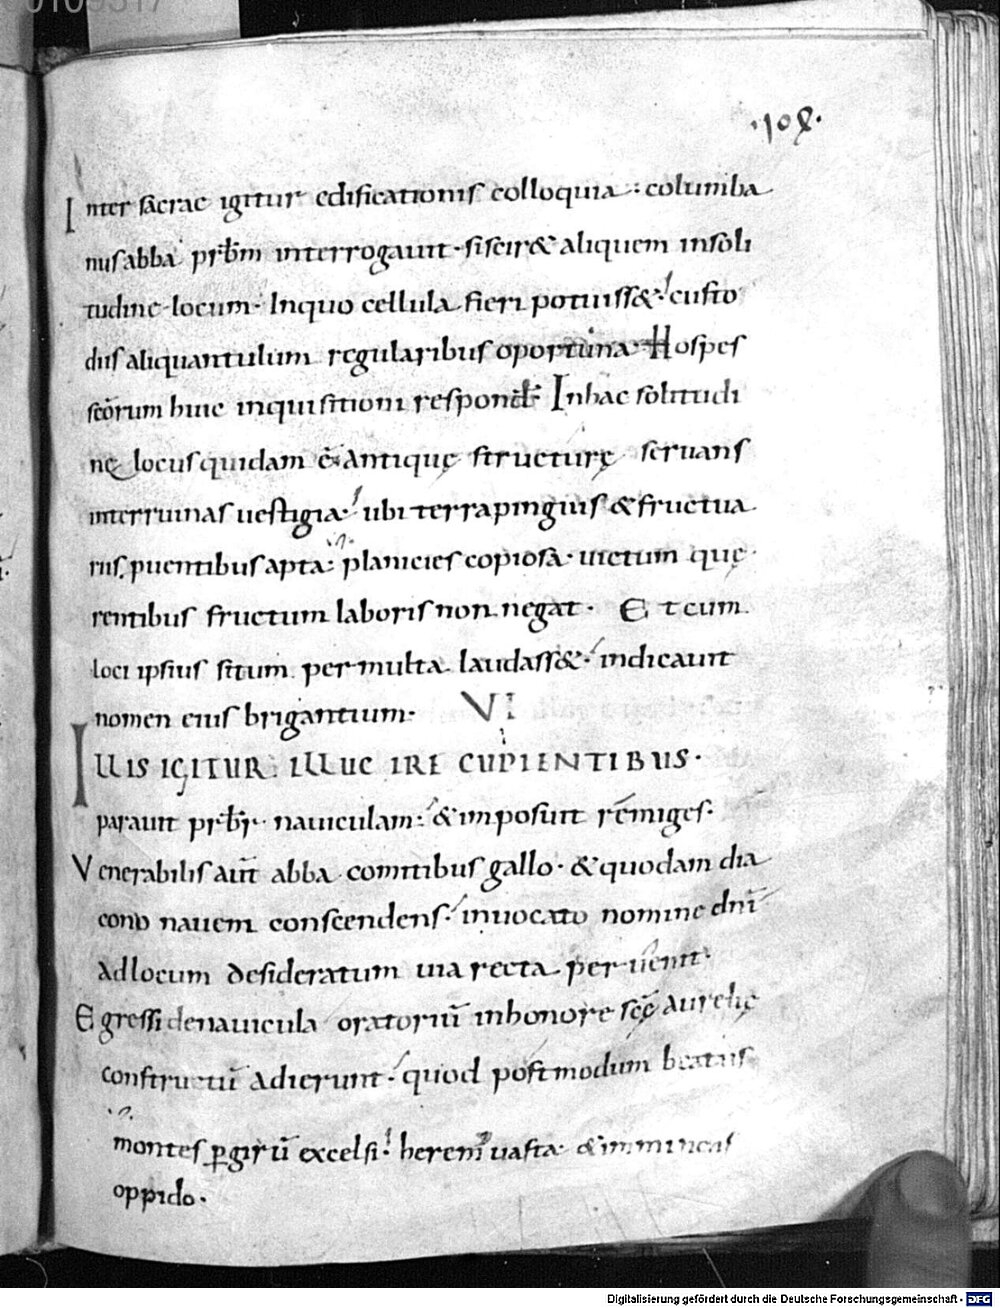 0100317
·108·
Inter sacrae igitur edificationis colloquia ⁖ columba
nus abba prb̄m interrogauit · si scir& aliquem in soli
tudine locum · In quo cellula fieri potuiss& · custo
diis aliquantulum regularibus oportuna · Hospes
sc̄orum huic inquisitioni respond̄ · In hac solitudi
nę locus quidam ē antiquę structurę seruans
inter ruinas uestigia · ubi terra pinguis & fructua
riis puentibus apta : planicies copiosa · uictum quę
rentibus fructum laboris non negat · Et cum
loci ipsius situm permulta laudass& · indicauit
nomen eius brigantium · VI
ILLIS IGITUR ILLUC IRE CUPIENTIBUS ·
parauit prb̄r nauiculam · & imposuit remiges ·
Venerabilis aut̄ abba comitibus gallo · & quodam dia
cono nauem conscendens · inuocato nomine dn̄i
ad locum desideratum uia recta peruenit ·
Egressi de nauicula oratoriū in honore sc̄ę aurelię
constructū adierunt · quod postmodum beatus
montes ꝑ girū excelsi · heremꝰ uasta · & imminens
oppido ·
Digitalisierung gefördert durch die Deutsche Forschungsgemeinschaft - DFG